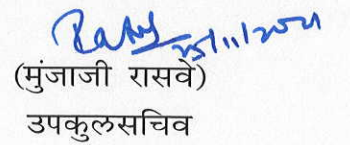 25/11/2021
(मुंजाजी रासवे)
उपकुलसचिव